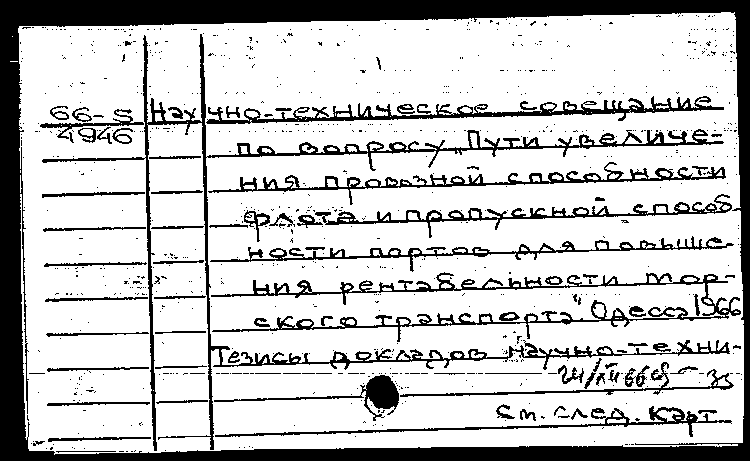 66-5 Научно-техническое совещание
4946
по вопросу „Пути увеличе-
ния провозной способности
флота и пропускной способ-
ности портов для повыше-
ния рентабельности мор-
ского транспорта". Одесса, 1966.
Тезисы докладов научно-техни-
см. след. карт